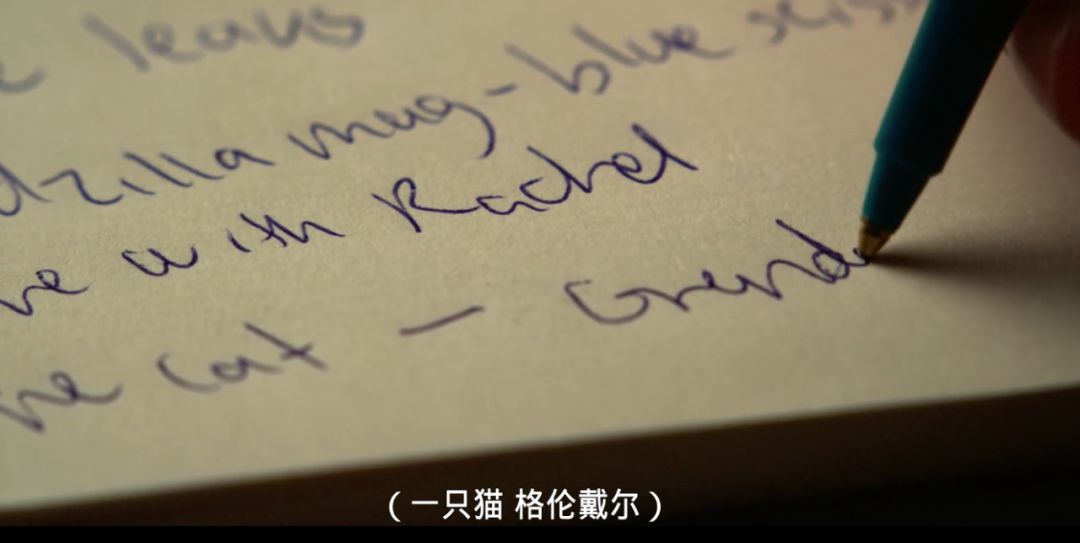 leaus
dzilla mug - blue sciss
ne with Rachel
ne cat - Grend
(一只猫 格伦戴尔)